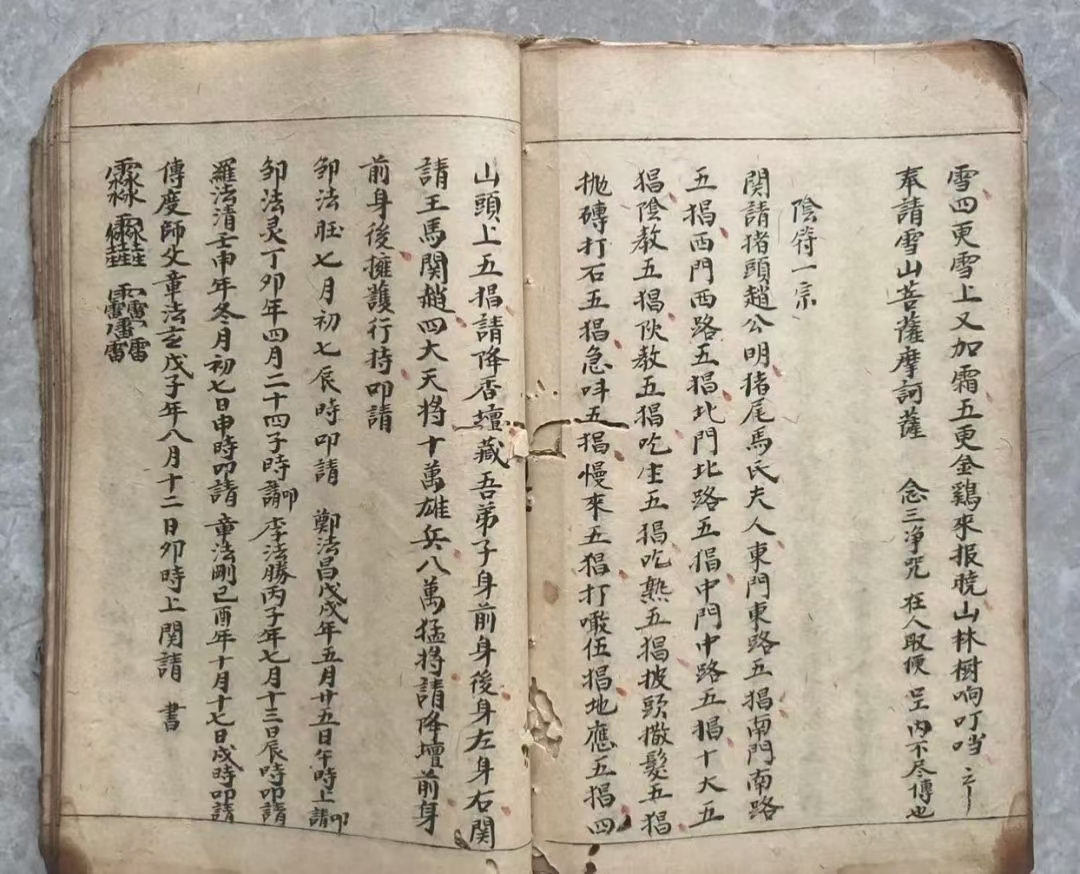 雪四更雪上又加霜五更金鷄來报曉山林樹响叮当
奉請雪山菩薩摩訶薩 念三净咒 在人取便 呈内不尽傳也
陰符一宗
関請猪頭趙公明猪尾馬氏夫人東門東路五猖南門南路
五猖西門西路五猖北門北路五猖中門中路五猖十大五
猖陰教五猖伙教五猖吃生五猖吃熟五猖披頭撒髮五猖
抛磚打石五猖急呌五猖慢來五猖打㗳伍猖地應五猖四
山頭上五猖請降香壇藏吾弟子身前身後身左身右関
請王馬関趙四大天将十萬雄兵八萬猛将請降壇前身
前身後擁護行持叩請
邹法旺七月初七辰時叩請 鄭法昌戊戌年五月廿五日午時上請叩
邹法灵丁卯年四月二十四子時叩請 李法勝丙子年七月十三日辰時叩請
羅法清壬申年冬月初七日申時叩請 童法剛己酉年十月十七日戍時叩請
傳度師父童法玄戊子年八月十二日卯時上関請 書